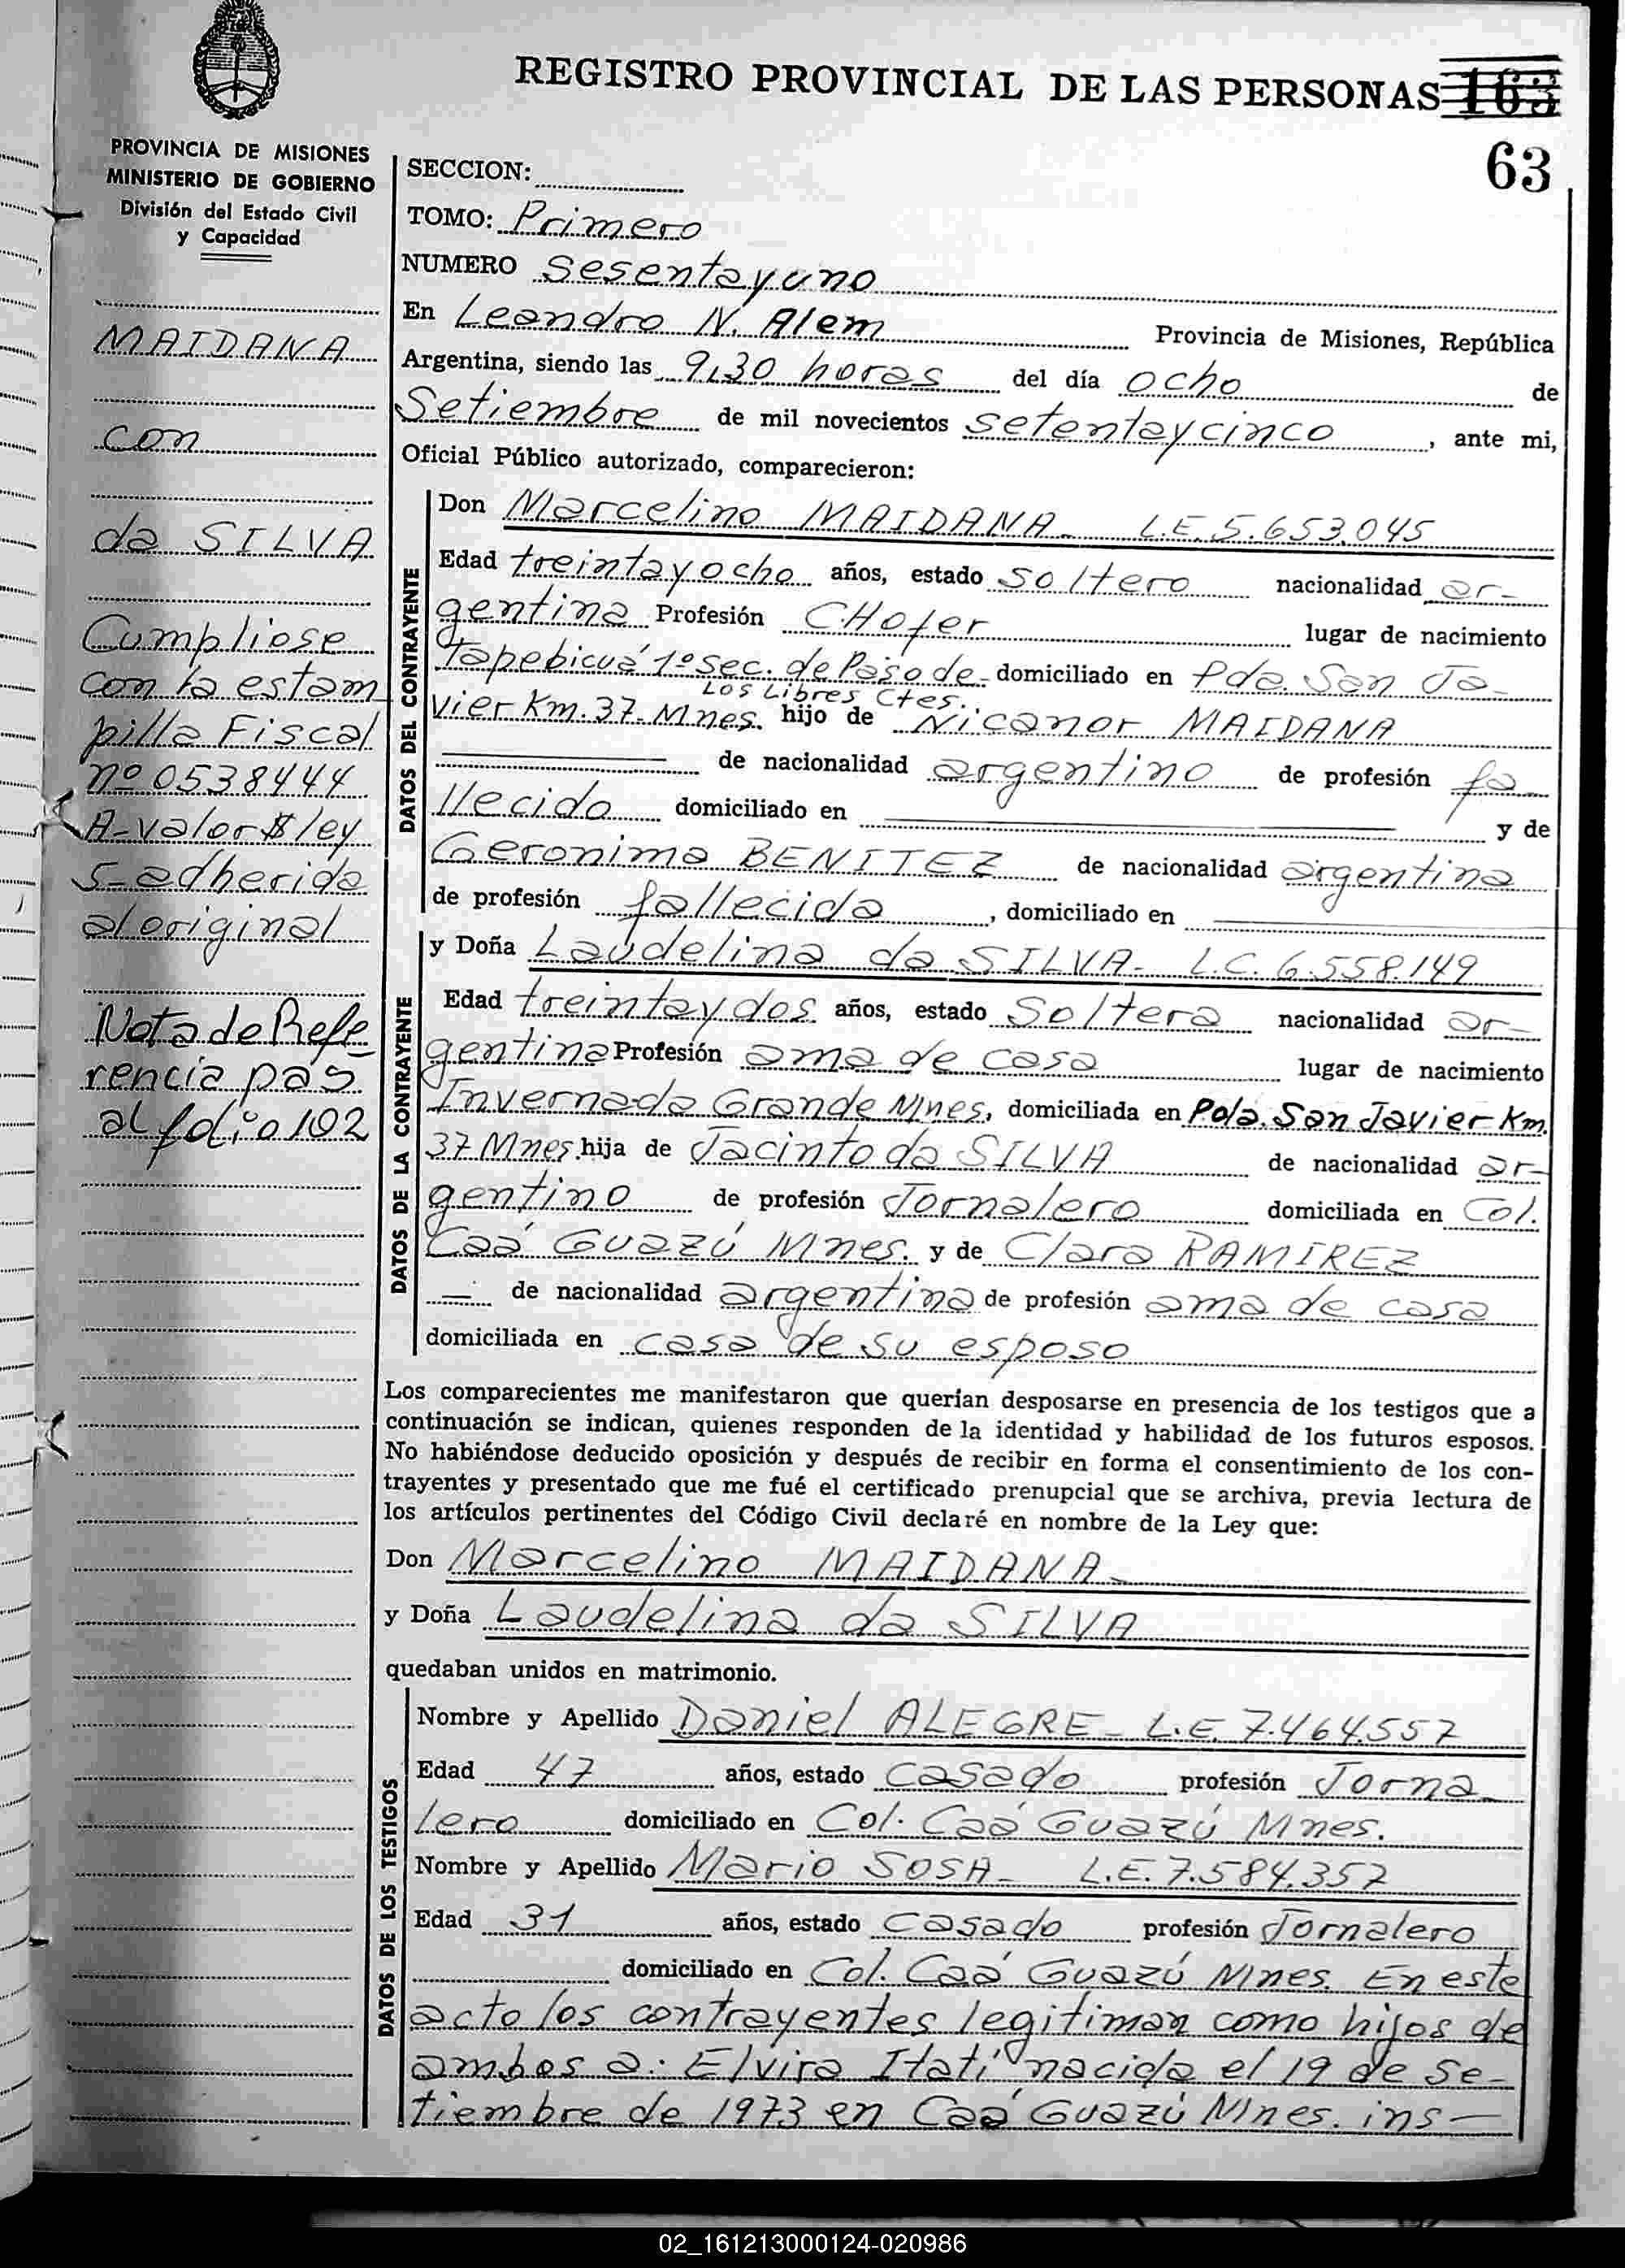 REGISTRO PROVINCIAL DE LAS PERSONAS 163
63
PROVINCIA DE MISIONES
MINISTERIO DE GOBIERNO
División del Estado Civil
y Capacidad
MAIDANA
con
da SILVA
Cumpliose
con la estam
pilla Fiscal
nº 0538444
A-valor $ ley
5-adherida
al original
Nota de Refe
rencia pás.
al folio 102
SECCION:
TOMO: Primero
NUMERO Sesentayuno
En Leandro N. Alem Provincia de Misiones, República
Argentina, siendo las 9,30 horas del día ocho de
Setiembre de mil novecientos setentaycinco, ante mi,
Oficial Público autorizado, comparecieron:
DATOS DEL CONTRAYENTE
Don Marcelino MAIDANA- L.E. 5.653.045
Edad treintayocho años, estado soltero nacionalidad ar-
gentina Profesión CHofer lugar de nacimiento
Tapebicuá 1º Sec. de Paso de- domiciliado en Pda. San Ja-
Los Libres Ctes.
vier Km. 37- Mnes. hijo de Nicanor MAIDANA
de nacionalidad argentino de profesión fa-
llecido domiciliado en y de
Geronima BENITEZ de nacionalidad argentina
de profesión fallecida, domiciliado en
DATOS DE LA CONTRAYENTE
y Doña Laudelina da SILVA- L.C. 6.558.149
Edad treintaydos años, estado Soltera nacionalidad ar-
gentina Profesión ama de casa lugar de nacimiento
Invernada Grande Mnes, domiciliada en Pda. San Javier Km.
37 Mnes. hija de Jacinto da SILVA de nacionalidad ar-
gentino de profesión Jornalero domiciliada en Col.
Caá Guazú Mnes. y de Clara RAMIREZ
— de nacionalidad argentina de profesión ama de casa
domiciliada en casa de su esposo
Los comparecientes me manifestaron que querían desposarse en presencia de los testigos que a
continuación se indican, quienes responden de la identidad y habilidad de los futuros esposos.
No habiéndose deducido oposición y después de recibir en forma el consentimiento de los con-
trayentes y presentado que me fué el certificado prenupcial que se archiva, previa lectura de
los artículos pertinentes del Código Civil declaré en nombre de la Ley que:
Don Marcelino MAIDANA-
y Doña Laudelina da SILVA
quedaban unidos en matrimonio.
DATOS DE LOS TESTIGOS
Nombre y Apellido Daniel ALEGRE- L.E. 7.464.557
Edad 47 años, estado casado profesión Jorna-
lero domiciliado en Col. Caá Guazú Mnes.
Nombre y Apellido Mario SOSA- L.E. 7.584.357
Edad 31 años, estado casado profesión Jornalero
domiciliado en Col. Caá Guazú Mnes. En este
acto los contrayentes legitiman como hijos de
ambos a: Elvira Itatí nacida el 19 de Se-
tiembre de 1973 en Caá Guazú Mnes. ins—
02_161213000124-020986